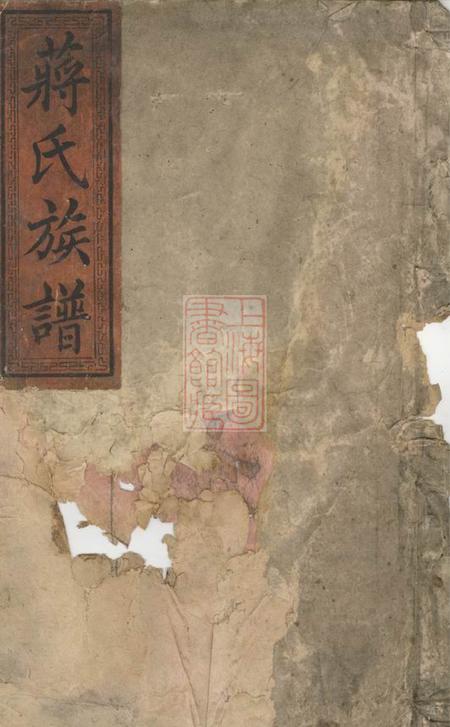 蔣氏族譜
上海圖書館藏